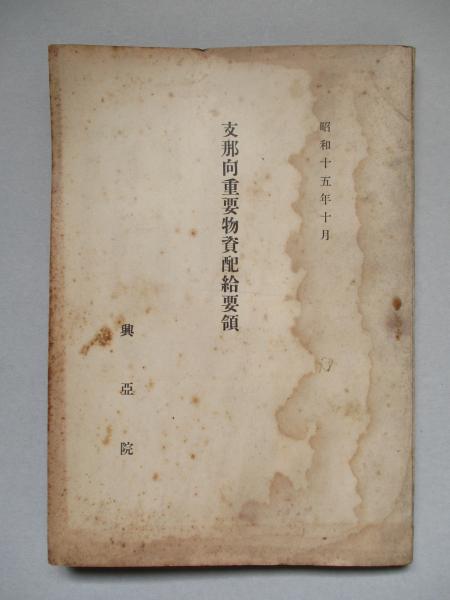 昭和十五年十月
支那向重要物資配給要領
興亞院